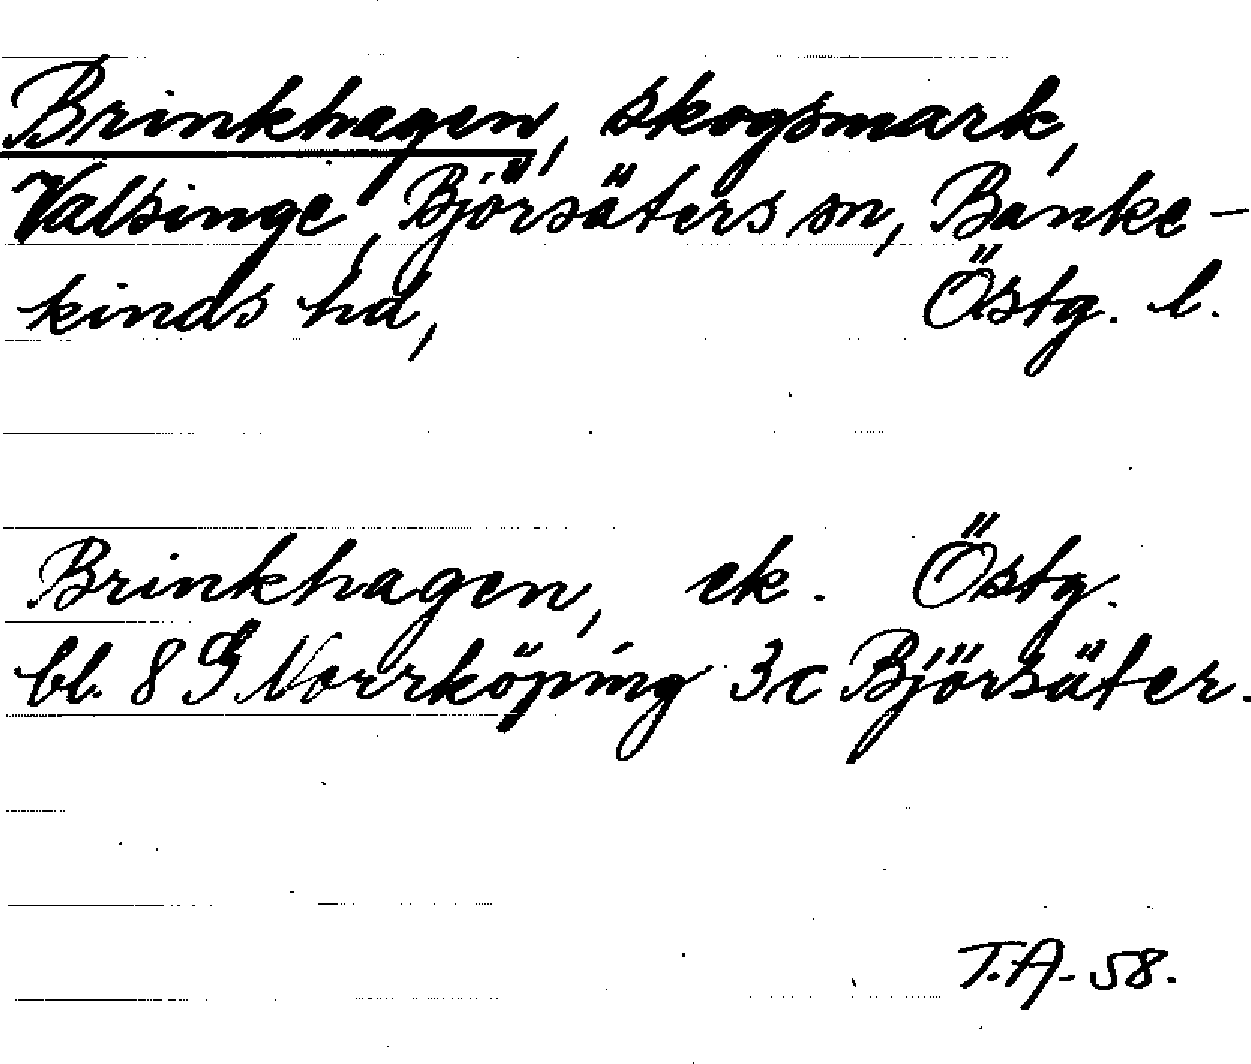 Brinkhagen, skogsmark,
Valsinge, Björsäters sn, Banke-
kinds hd, Östg. l.
Brinkhagen, ek. Östg.
bl. 8 G Norrköping 3c Björsäter.
T.A-58.